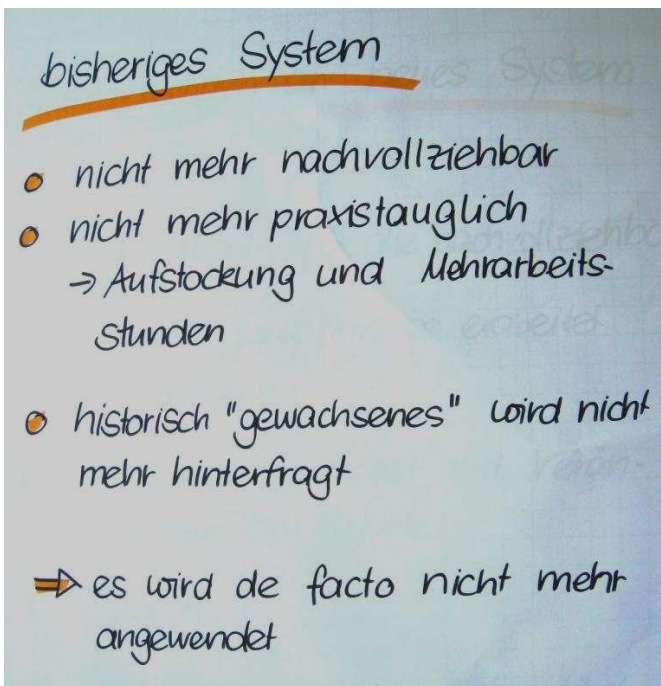 bisheriges System
neues System
nicht mehr nachvollziehbar
nicht mehr praxistauglich
→ Aufstockung und Mehrarbeits-
stunden
historisch "gewachsenes" wird nicht
mehr hinterfragt
⇒ es wird de facto nicht mehr
angewendet